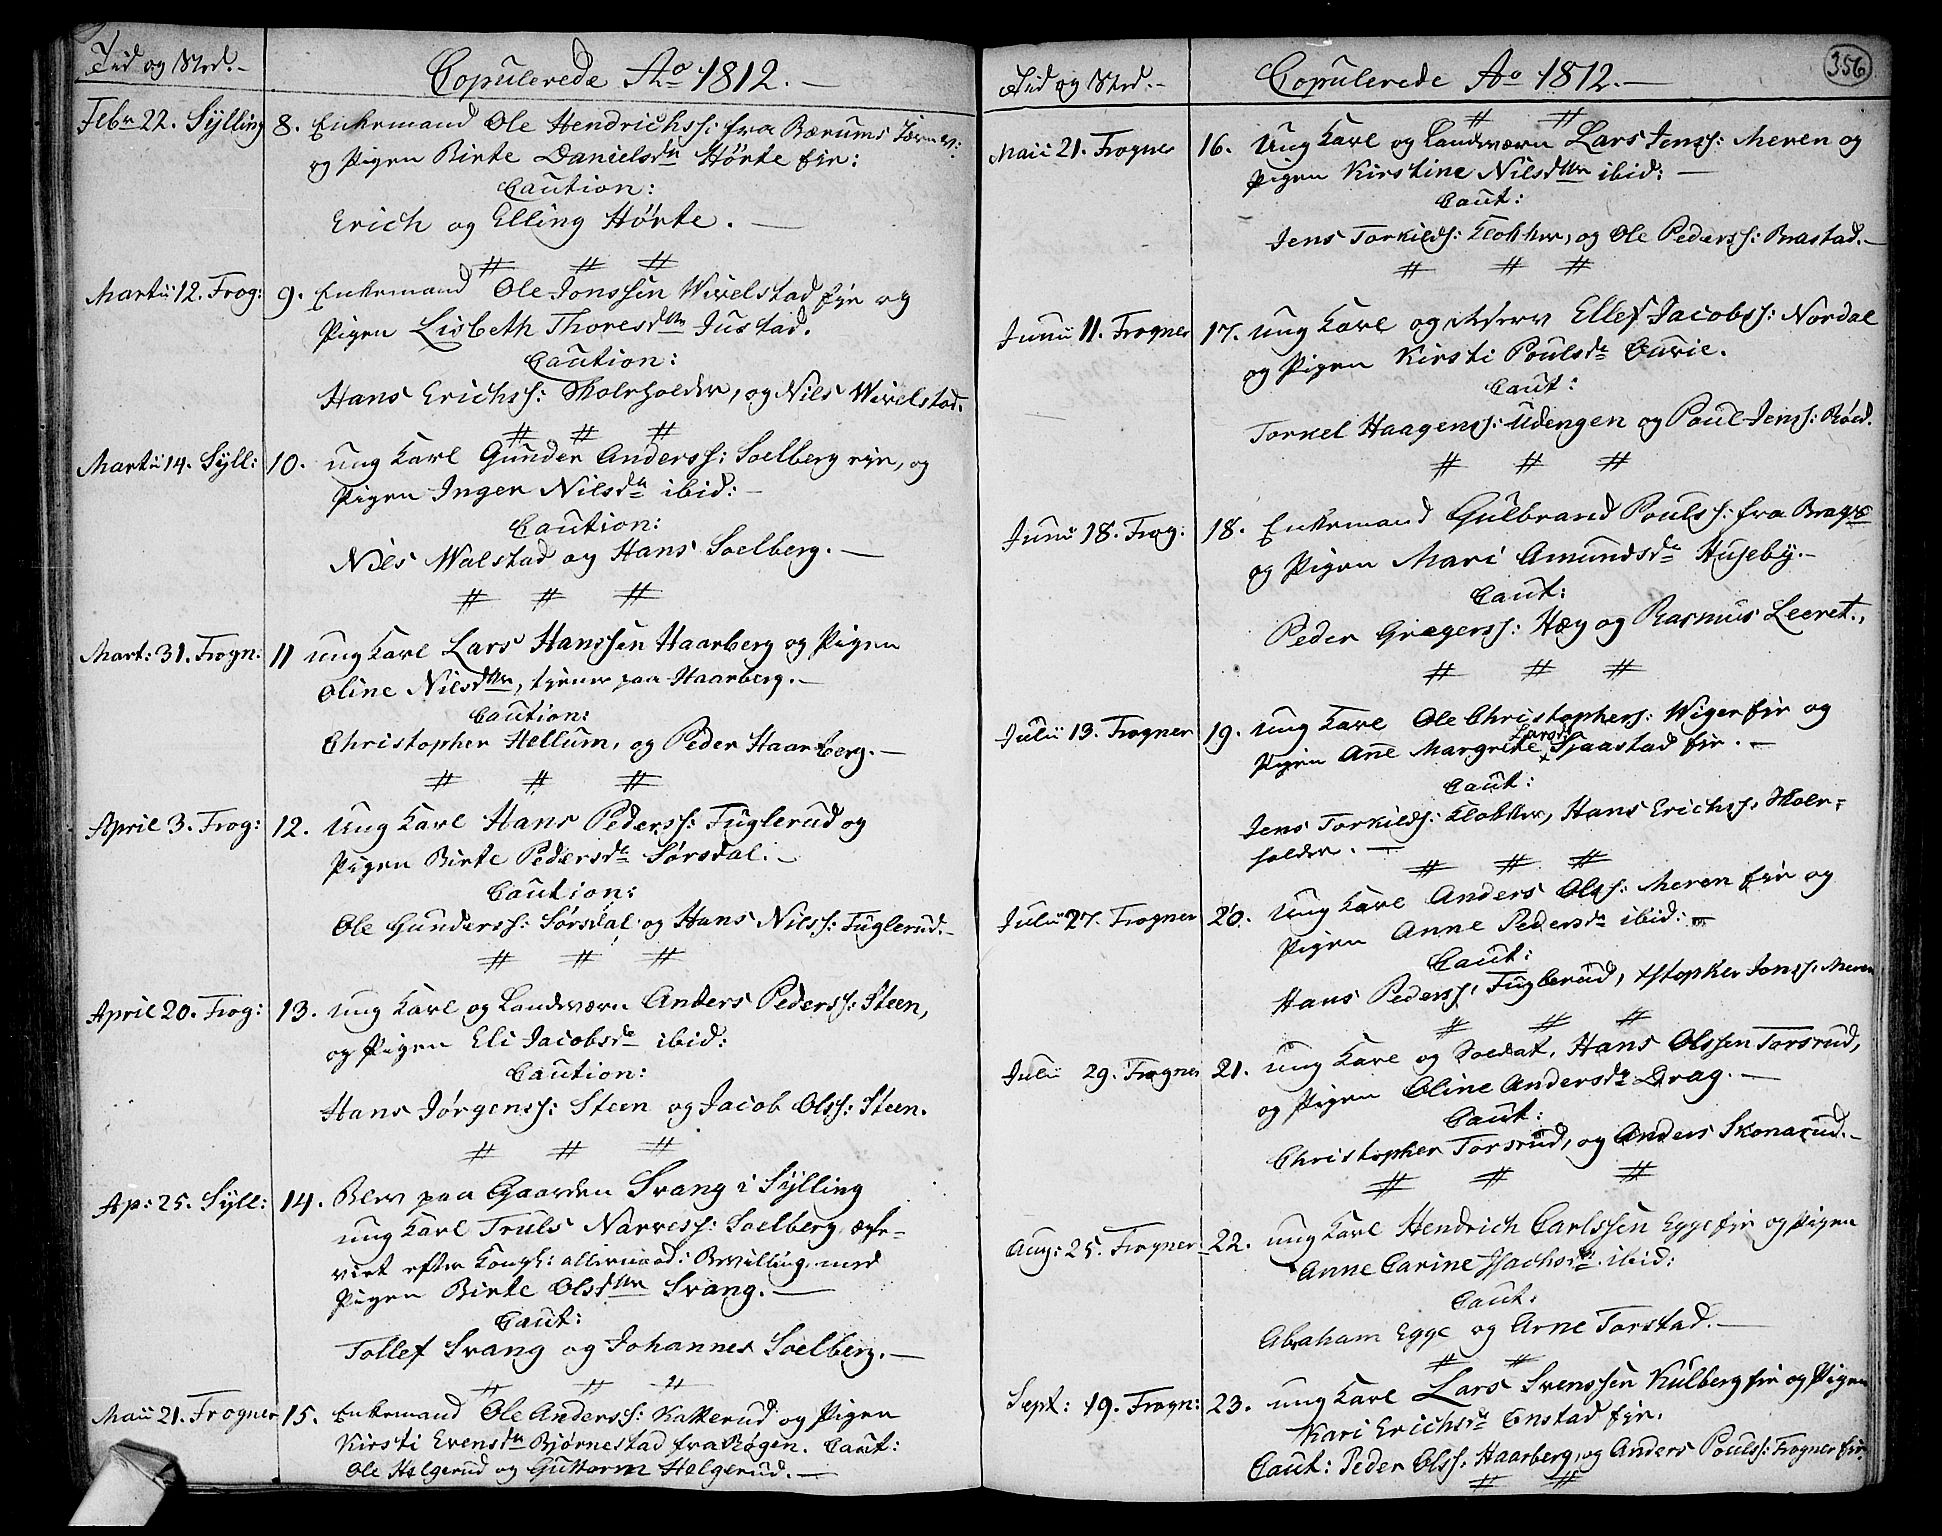 Tid og Sted.
Copulerede Ao 1812.
Febr 22. Sÿlling 8. Enkemand Ole Hendrichss: fra Bærums Jernv:
og Pigen Birte Danielsdr Hörte eje:
Caution:
Erich og Elling Hörte.
# # #
Martii 12. Frog: 9. Enkemand Ole Jonssen Wivelstad eje og
Pigen Lisbeth Thoresdttr Justad.
Caution:
Hans Erichss: Skoleholder, og Nils Wivelstad.
# # #
Martii 14. Sÿll: 10. ung Karl Gunder Anderss: Soelberg eje, og
Pigen Inger Nilsdr ibid:
Caution:
Niels Walstad og Hans Soelberg.
# # #
Mart: 31. Frogn: 11 ung Karl Lars Hanssen Haarberg og Pigen
Oline Nilsdttr, tjener paa Haarberg.
Caution:
Christopher Hellum, og Peder Haarberg.
# # #
April 3. Frog: 12. Ung Karl Hans Pederss: Fuglerud og
Pigen Birte Pedersdr Sörsdal.
Caution:
Ole Gunderss: Sörsdal og Hans Nilss: Fuglerud.
# # #
April 20. Frog: 13. ung Karl og Landværn Anders Pederss: Steen,
og Pigen Eli Jacobsdr ibid:
Caution:
Hans Jörgenss: Steen og Jacob Olss: Steen.
# # #
Ap: 25. Sÿll: 14. Blev paa Gaarden Svang i Sÿlling
ung Karl Truls Narvess: Soelberg, copu-
leret efter Kongl: allernaad: Bevilling, med
Pigen Birte Olsdttr Svang.
Caut:
Tollef Svang og Johannes Soelberg.
# # #
Maii 21. Frogner 15. Enkemand Ole Anderss: Katterud og Pigen
Kirsti Evensdr Björnestad fra Rögen. Caut:
Ole Helgerud og Guttorm Helgerud.
Tid og Sted.
Copulerede Ao 1812.
356
# #
Maii 21. Frogner 16. Ung Karl og Landværn Lars Jenss: Meren og
Pigen Kirstine Nilsdttr ibid:
Caut:
Jens Torkilds: Klokker, og Ole Pederss: Brastad.
# # #
Junii 11. Frogner 17. ung Karl og Ellef Jacobss: Nordal
og Pigen Kirsti Poulsdr Ourie.
Caut:
Torkel Haagenss: Udengen og Poul Jenss: Röed.
# # #
Junii 18. Frog: 18. Enkemand Gulbrand Poulss: fra Brags
og Pigen Mari Amundsdr Huseby.
Caut:
Peder Gregerss: Hæg og Rasmus Leeret.
# # #
Julii 13. Frogner 19. ung Karl Ole Christophers: Wiger eje og
Larsdr
Pigen Ane Margrete × Sjaastad eje.
Caut:
Jens Torkilds: Klokker, Hans Erichss: Skole-
holder.
# # #
Julii 27. Frogner 20. Ung Karl Anders Olss: Meren eje og
Pigen Anne Pedersdr ibid:
Caut:
Hans Pederss: Fuglerud, Xstopher Jonss: Meren
# # #
Julii 29. Frogner 21. ung Karl og Soldat, Hans Olssen Torsrud,
og Pigen Oline Andersdr Drag.
Caut:
Christopher Torsrud, og Anders Skonarud.
# # #
Aug: 25. Frogner 22. ung Karl Hendrich Carlssen Egge eje og Pigen
Anne Carine Isachsdr ibid:
Caut:
Abraham Egge og Arne Torstad.
# #
Sept: 19. Frogn: 23. ung Karl Lars Svenssen Kulberg eje og Pigen
Kari Erichsdr Enstad eje.
Caut: Peder Olss: Haarberg, og Anders Poulss: Frogner eje.
# #